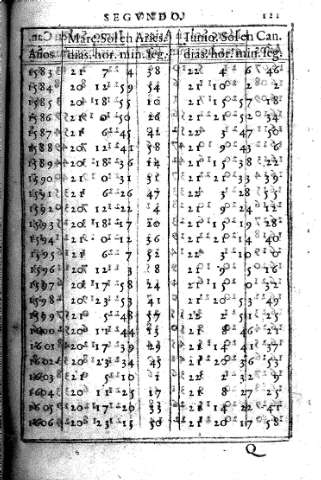 SEGVNDO. 121
Marc. Sol en Aries. Iunio. Sol en Can.
Años dias. hor. min. seg. dias. hor. min. seg.
1583 21 7 4 38 22 4 6 46
1584 20 12 59 54 21 10 2 2
1585 20 18 55 10 21 15 57 18
1586 21 0 50 26 21 21 52 34
1587 21 6 45 42 22 3 47 50
1588 20 12 41 58 21 9 43 6
1589 20 18 36 14 21 15 38 22
1590 21 0 31 31 21 21 33 39
1591 21 6 26 47 22 3 28 55
1592 20 12 22 4 21 9 24 12
1593 20 18 17 20 21 15 19 28
1594 21 0 12 36 21 21 14 40
1595 21 6 7 52 22 3 10 0
1596 20 12 3 8 21 9 5 16
1597 20 17 58 24 21 15 0 32
1598 20 23 53 41 21 20 53 49
1599 21 5 48 57 22 2 51 25
1600 20 11 44 13 21 8 46 21
1601 20 17 39 29 21 14 41 37
1602 20 23 34 45 21 20 36 53
1603 21 5 10 1 22 2 32 9
1604 20 11 25 17 21 8 27 25
1605 20 17 20 33 21 14 22 41
1606 21 20 17 58
Q